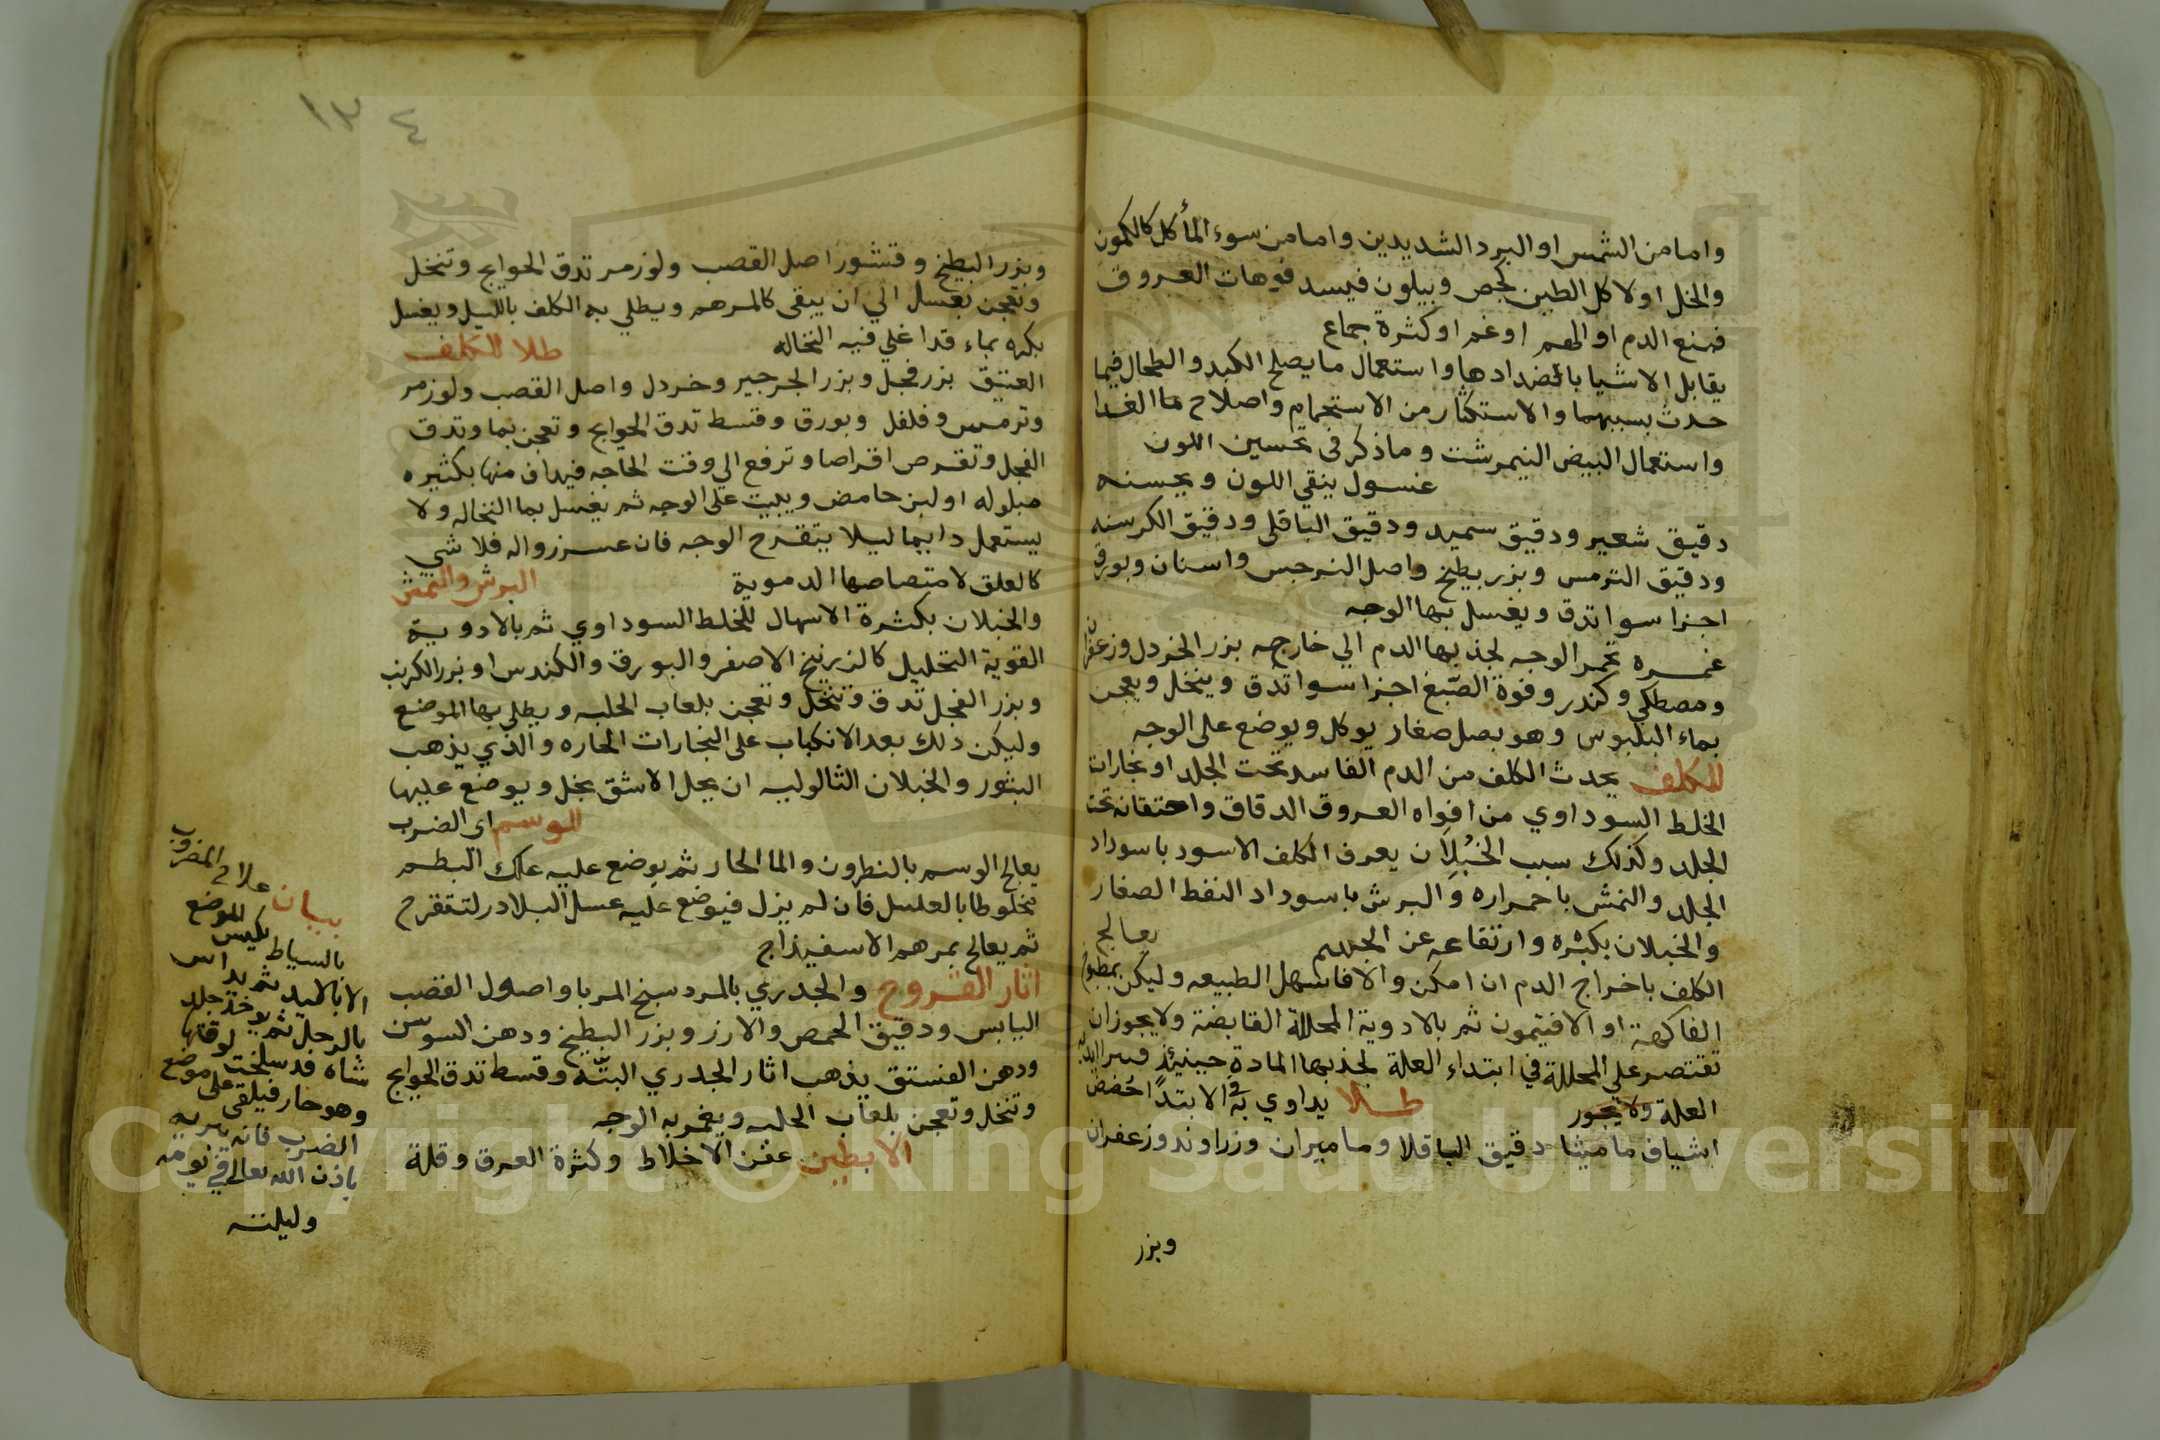 وامامن الشمس او البرد الشديدين وامامن سوء المأكل كالكمون
والخل او لاكل الطين كجص وبيلون فيسد فوهات العروق
فيمنع الدم او الهم او غم او كثرة جماع
يقابل الاشيا باضدادها واستعمال ما يصلح الكبد والطحال فيما
حدث بسببهما والاستكثار من الاستحمام واصلاح الغدا
واستعمال البيض النيمرشت وماذكر في تحسين اللون
غسول ينقي اللون ويحسنه
دقيق شعير ودقيق سميد ودقيق الباقلي ودقيق الكرسنه
ودقيق الترمس وبزر بطيخ واصل النرجس واسنان وبورق
اجزا سوا تدق ويغسل بها الوجه
غمره تحمر الوجه لجذبها الدم الي خارجه بزر الخردل وزعفران
ومصطكي وكندر وفوة الصبغ اجزا سوا تدق وينخل ويعجن
بماء البلبوس وهو بصل صغار يوكل ويوضع على الوجه
للكلف يحدث الكلف من الدم الفاسد تحت الجلد او بخارات
الخلط السوداوي من افواه العروق الدقاق واحتقانه تحت
الجلد وكذلك سبب الخيلان يعرف الكلف الاسود باسوداد
الجلد والنمش باحمراره والبرش باسوداد النقط الصغار
والخيلان بكثره وارتفاعه عن الجسم يعالج
الكلف باخراج الدم ان امكن والا فاسهل الطبيعه وليكن بمطبوخ
الفاكهة او الافتيمون ثم بالادوية المحللة القابضة ولايجوز ان
تقتصر علي المحللة في ابتداء العلة لجذبها المادة حينيئذ
العلة ولا يجور طلا يداوي به الابتدا حضض
اشياف ماميثا دقيق الباقلا وماميران وزراوند وزعفران
وبزر
١٣ ٤
وبزر البطيخ وقشور اصل القصب ولوز مر تدق الحوايج وتنخل
وتعجن بعسل الي ان يبقى كالمرهم ويطلي به الكلف بالليل ويغسل
بكره بماء قد اغلي فيه النخاله طلا للكلف
العتيق بزر فجل وبزر الجرجير وخردل واصل القصب ولوز مر
وترمس وفلفل وبورق وقسط تدق الحوايج وتعجن بما ورق
الفجل وتقرص اقراصا وترفع الي وقت الحاجه فيداف منها بكثيره
مبلوله او لبن حامض ويبيت على الوجه ثم يغسل بما النخاله ولا
يستعمل دايما ليلا يتقرح الوجه فان عسر زواله فلا شي
كالعلق لامتصاصها الدموية البرش والنمش
والخيلان بكثرة الاسهال للخلط السوداوي ثم بالادوية
القوية التحليل كالزرنيخ الاصفر والبورق والكندس او بزر الكرنب
وبزر الفجل تدق وتنخل وتعجن بلعاب الحلبه ويطلي بها الموضع
وليكن ذلك بعد الانكباب على البخارات الحاره والذي يذهب
البثور والخيلان الثالوليه ان يحل الاشق بخل ويوضع عليها
للوسم اي الضرب
يعالج الوسم بالنطرون والما الحار ثم يوضع عليه علك البطم
مخلوطا بالعسل فان لم يزل فيوضع عليه عسل البلادر لتقرح
ثم يعالج بمرهم الاسفيذاج
اثار القروح والجدري بالمردسنج المربا واصول القصب
اليابس ودقيق الحمص والارز وبزر البطيخ ودهن السوسن
ودهن الفستق يذهب اثار الجدري البتّه وقسط تدق الحوايج
وتنخل وتعجن بلعاب الحلبه ويغمر به الوجه
الابطين عفن الاخلاط وكثرة العرق وقلة
بيان علاج المضروب
بالسياط يكبس الموضع
ثم يداس
بالرجل ثم يوخذ جلد
شاه قد سلخت لوقتها
وهو حار فيلقى على موضع
الضرب فانه يبريه
باذن الله تعالى في يومه
وليلته